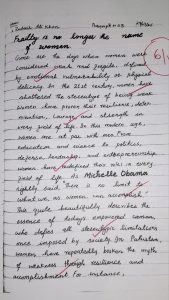 Frailty is no longer the name
of women
Gone are the days when women were
considered weak and fragile, defined
by emotional vulnerability or physical
delicacy. In the 21st century, women have
shattered the stereotype of being weak.
women have proven their resilience, deter-
mination, courage and strength in
every field of life. In this modern age,
women are at par with men. From
education and science to politics,
defense, leadership, and entrepreneurship
women have redefined their roles in every
field of life. As Michelle Obama
rightly said, "There is no limit to
what we, as women, can accomplish."
This quote beautifully describes the
essence of today's empowered woman,
who defies all stereotypic limitations
once imposed by society. In Pakistan,
women have repeatedly broken the myth
of weakness through resilience and
accomplishment. For instance,